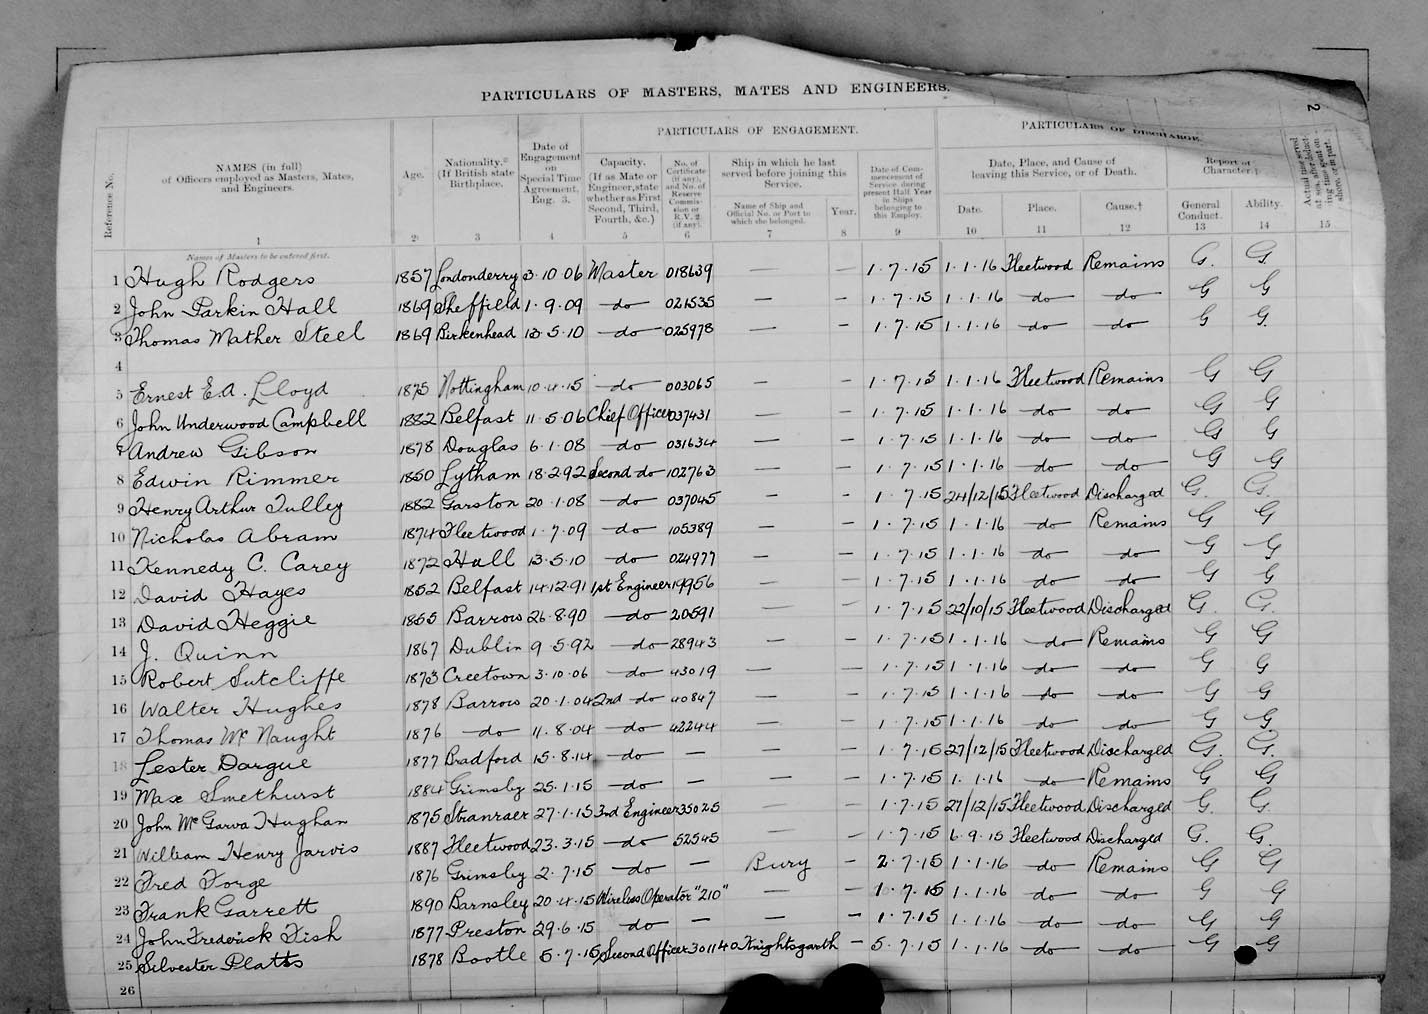 PARTICULARS OF MASTERS, MATES AND ENGINEERS.
2
Reference No.
NAMES (in full) of Officers employed as Masters, Mates, and Engineers.
Age.
Nationality. (If British state Birthplace.
Date of Engagement on Special Time Agreement, Eng. 3.
PARTICULARS OF ENGAGEMENT.
Capacity. (If as Mate or Engineer, state whether as First Second, Third, Fourth, &c.)
No. of Certificate (if any), and No. of Reserve Commission or R.V. 2 (if any).
Ship in which he last served before joining this Service.
Name of Ship and Official No. or Port to which she belonged.
Year.
Date of Commencement of Service during present Half Year in Ships belonging to this Employ.
PARTICULARS OF DISCHARGE.
Date, Place, and Cause of leaving this Service, or of Death.
Date.
Place.
Cause.†
Report of Character.†
General Conduct.
Ability.
Actual time served at sea, after deducting time spent on shore, or in part.
1 2 3 4 5 6 7 8 9 10 11 12 13 14 15
Names of Masters to be entered first.
1 Hugh Rodgers 1857 Londonderry 3.10.06 Master 018639 — — 1.7.15 1.1.16 Fleetwood Remains G. G
2 John Parkin Hall 1869 Sheffield 1.9.09 —do— 021535 — — 1.7.15 1.1.16 —do— —do— G G
3 Thomas Mather Steel 1869 Birkenhead 13.5.10 —do— 025978 — — 1.7.15 1.1.16 —do— —do— G G.
4
5 Ernest E.A. Lloyd 1875 Nottingham 10.4.15 —do— 003065 — — 1.7.15 1.1.16 Fleetwood Remains G G
6 John Underwood Campbell 1882 Belfast 11.5.06 Chief Officer 037431 — — 1.7.15 1.1.16 —do— —do— G G
7 Andrew Gibson 1878 Douglas 6.1.08 —do— 031634 — — 1.7.15 1.1.16 —do— —do— G G
8 Edwin Rimmer 1850 Lytham 18.2.92 Second do 102763 — — 1.7.15 1.1.16 —do— —do— G G
9 Henry Arthur Tulley 1882 Garston 20.1.08 —do— 037045 — — 1.7.15 24/12/15 Fleetwood Discharged G. G.
10 Nicholas Abram 1874 Fleetwood 1.7.09 —do— 105389 — — 1.7.15 1.1.16 —do— Remains G G
11 Kennedy C. Carey 1872 Hull 13.5.10 —do— 024977 — — 1.7.15 1.1.16 —do— —do— G G
12 David Hayes 1852 Belfast 14.12.91 1st Engineer 19956 — — 1.7.15 1.1.16 —do— —do— G G
13 David Heggie 1855 Barrow 26.8.90 —do— 20591 — — 1.7.15 22/10/15 Fleetwood Discharged G. G.
14 J. Quinn 1867 Dublin 9.5.92 —do— 28943 — — 1.7.15 1.1.16 —do— Remains G G
15 Robert Sutcliffe 1873 Creetown 3.10.06 —do— 43019 — — 1.7.15 1.1.16 —do— —do— G G
16 Walter Hughes 1878 Barrow 20.1.04 2nd do 40847 — — 1.7.15 1.1.16 —do— —do— G G
17 Thomas McNaught 1876 —do— 11.8.04 —do— 42244 — — 1.7.15 1.1.16 —do— —do— G G.
18 Lester Dargue 1877 Bradford 15.8.14 —do— — — — 1.7.15 27/12/15 Fleetwood Discharged G. G.
19 Max Smethurst 1884 Grimsby 25.1.15 —do— — — — 1.7.15 1.1.16 —do— Remains G G
20 John McGarva Hughan 1875 Stranraer 27.1.15 3rd Engineer 35025 — — 1.7.15 27/12/15 Fleetwood Discharged G. G.
21 William Henry Jarvis 1887 Fleetwood 23.3.15 —do— 52545 — — 1.7.15 6.9.15 Fleetwood Discharged G. G.
22 Fred Forge 1876 Grimsby 2.7.15 —do— — Bury — 2.7.15 1.1.16 —do— Remains G G
23 Frank Garrett 1890 Barnsley 20.4.15 Wireless Operator "210" — — 1.7.15 1.1.16 —do— —do— G G
24 John Frederick Fish 1877 Preston 29.6.15 —do— — — — 1.7.15 1.1.16 —do— —do— G G
25 Silvester Platts 1878 Bootle 5.7.15 Second Officer 301140 Knightsgarth — 5.7.15 1.1.16 —do— —do— G G
26